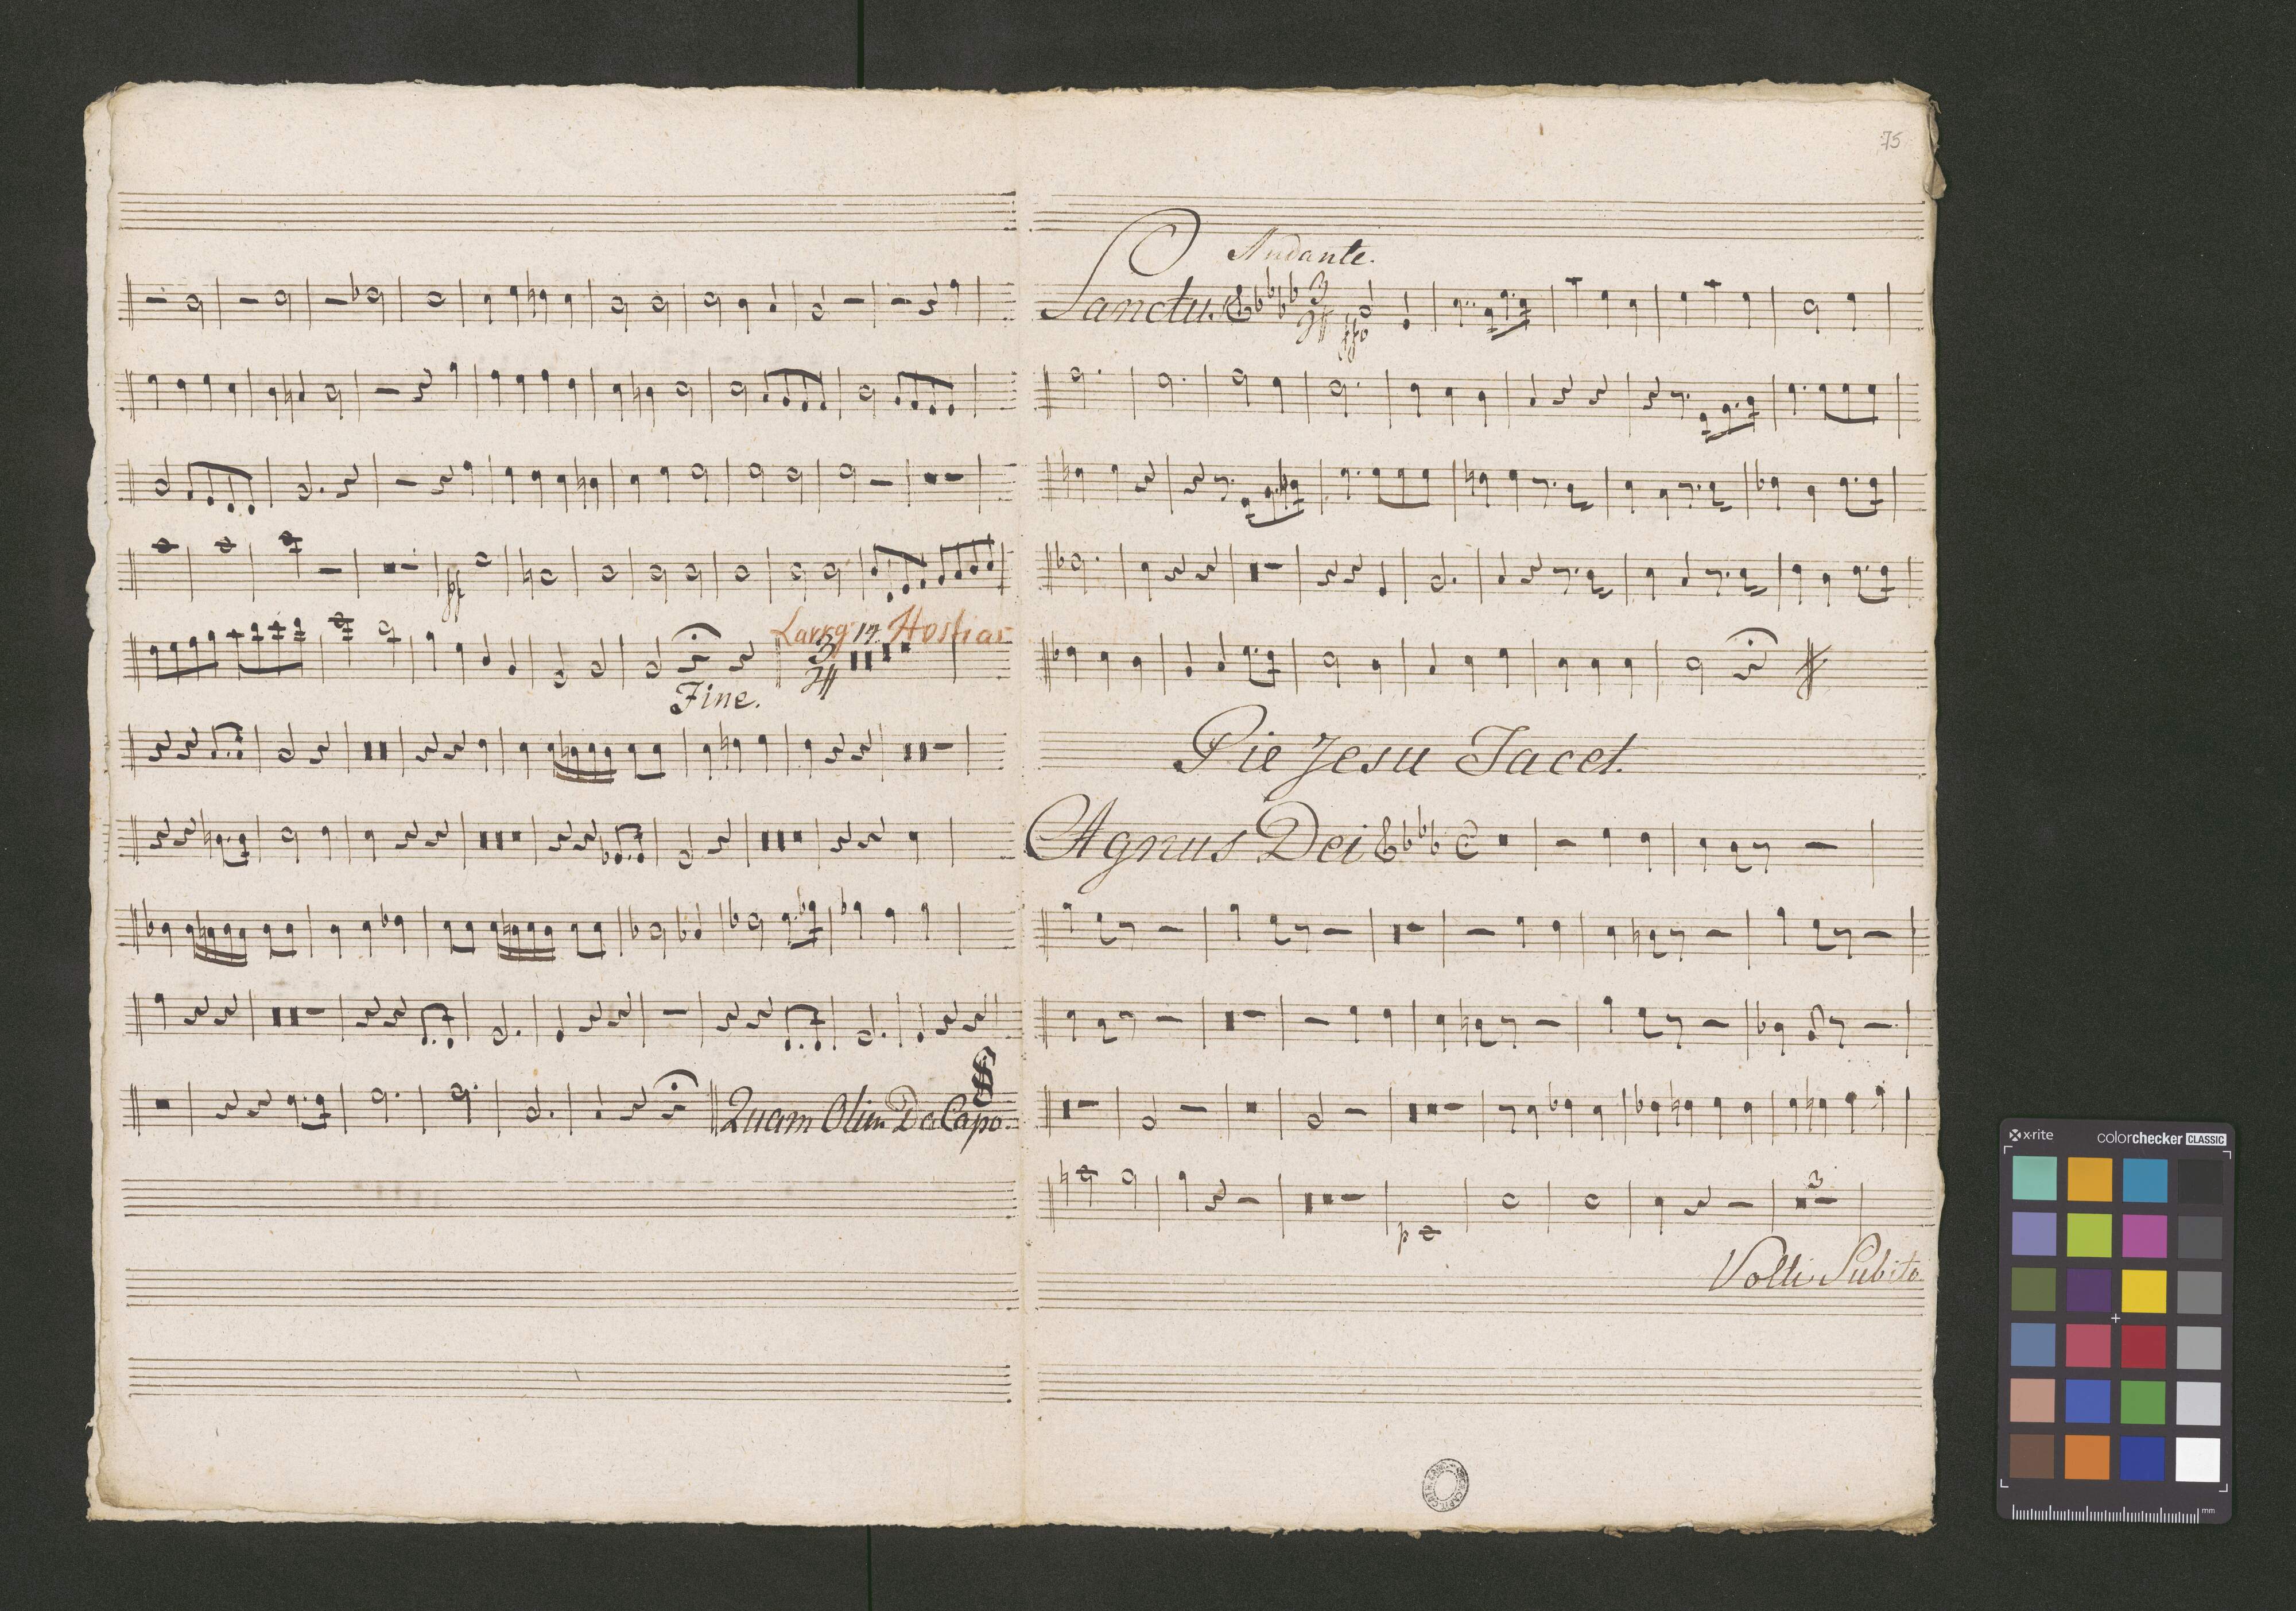 Larg 14 Hostias
Fine.
Quam Olim Da Capo.
75
Andante.
Sanctus
ffo
Pie Jesu Tacet.
Agnus Dei
p
3
Volti Subito
x-rite colorchecker CLASSIC
mm